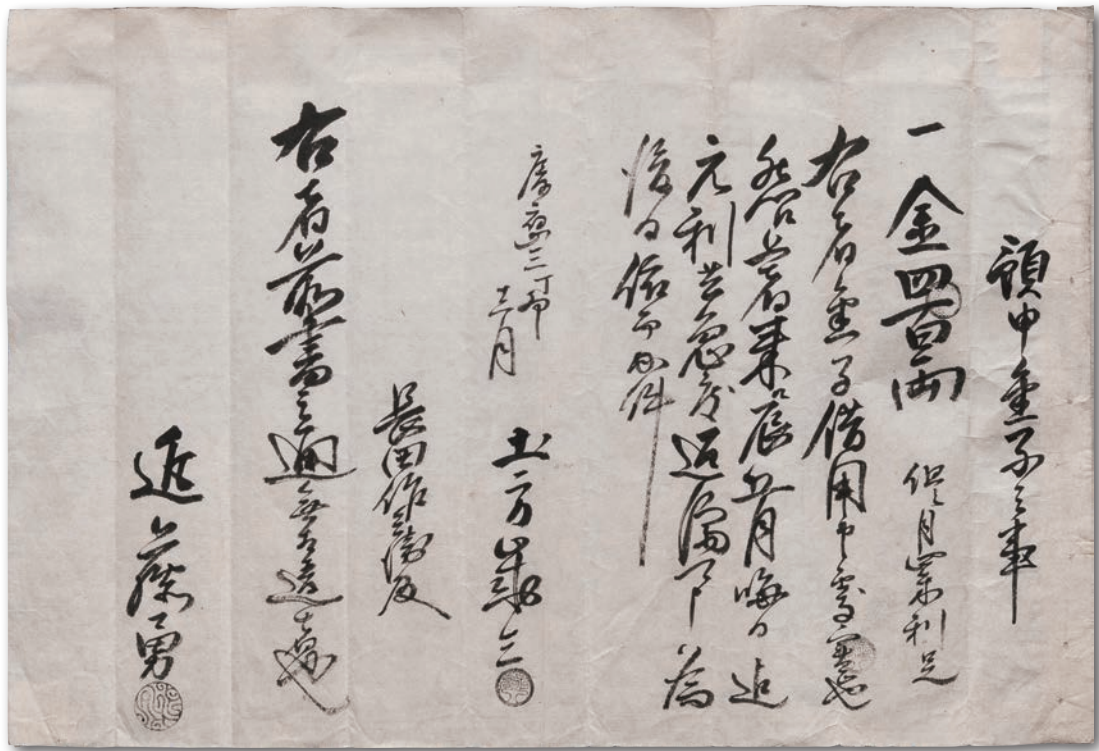 預申金子之事
一金四百両 但月
右者金子借用申処実也
然者来辰五月晦日迄
元利共急度返済可申為
後日依而如件
慶応三丁卯
十二月 土方歳三
長田作兵衛殿
右者前書之通無相違也
近藤勇